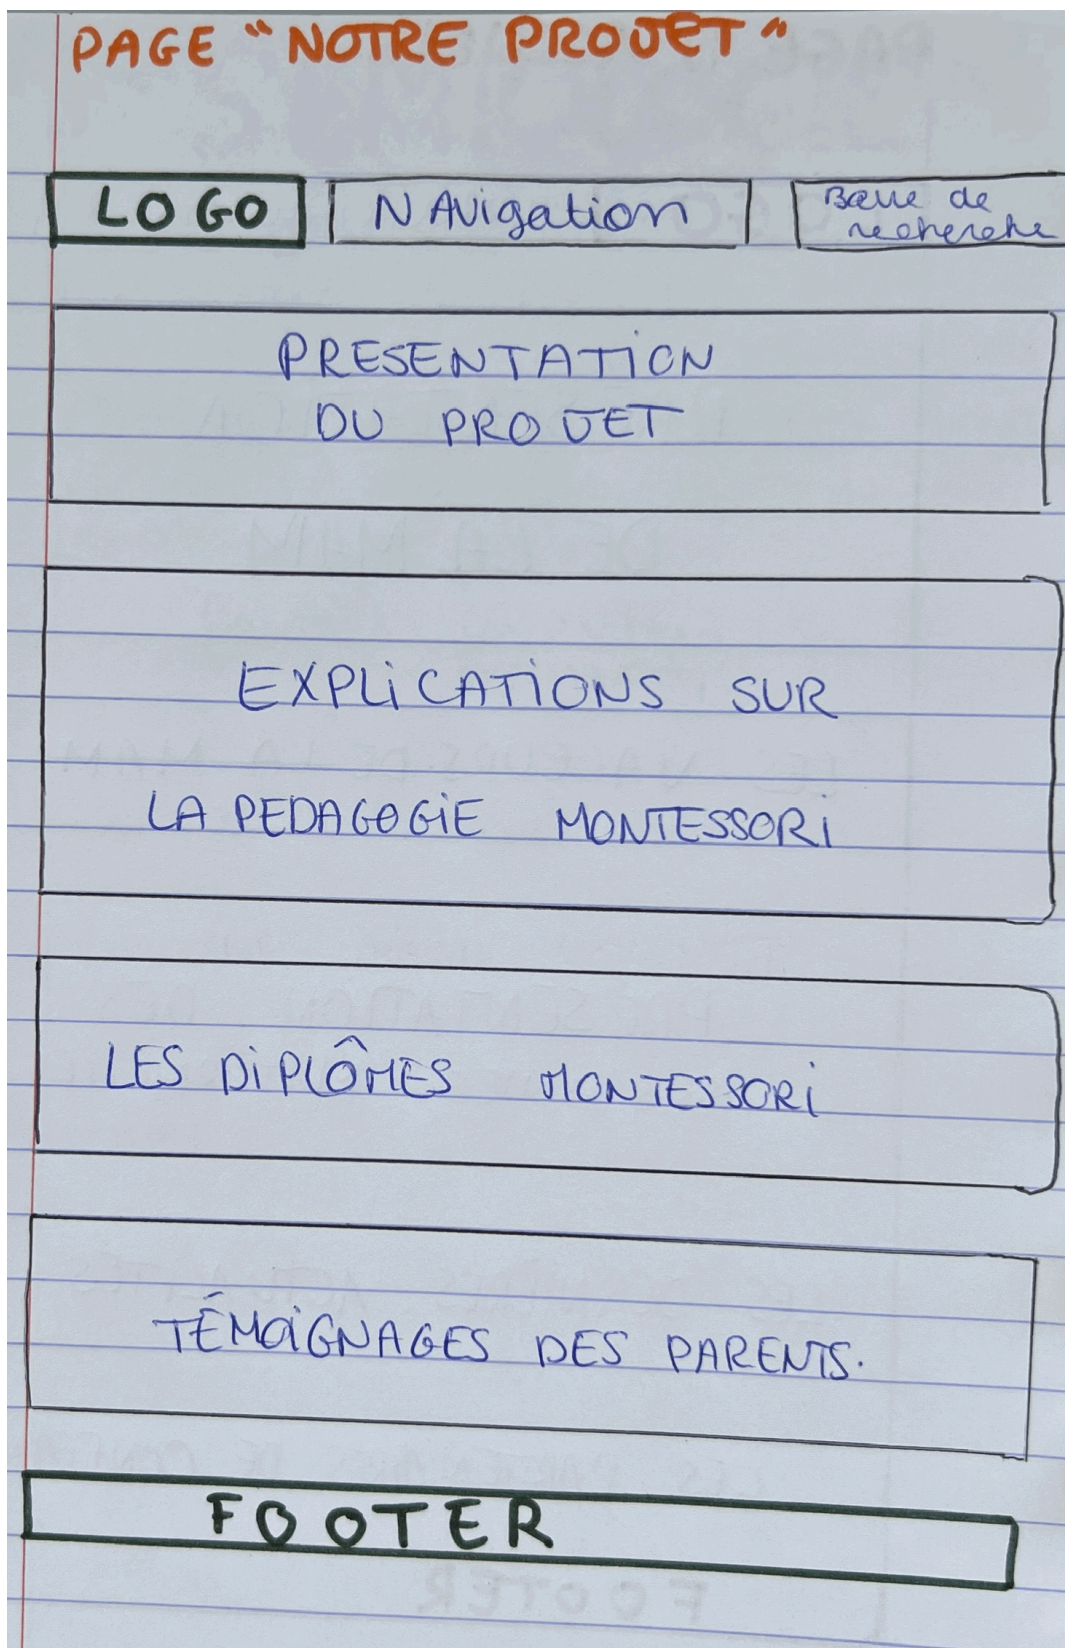 PAGE "NOTRE PROJET"
LOGO NAVigation Barre de
recherche
PRESENTATiON
DU PROJET
EXPLiCATiONS SUR
LA PEDAGOGiE MONTESSORi
LES DiPLÔMES MONTESSORi
TÉMOiGNAGES DES PARENTS.
FOOTER